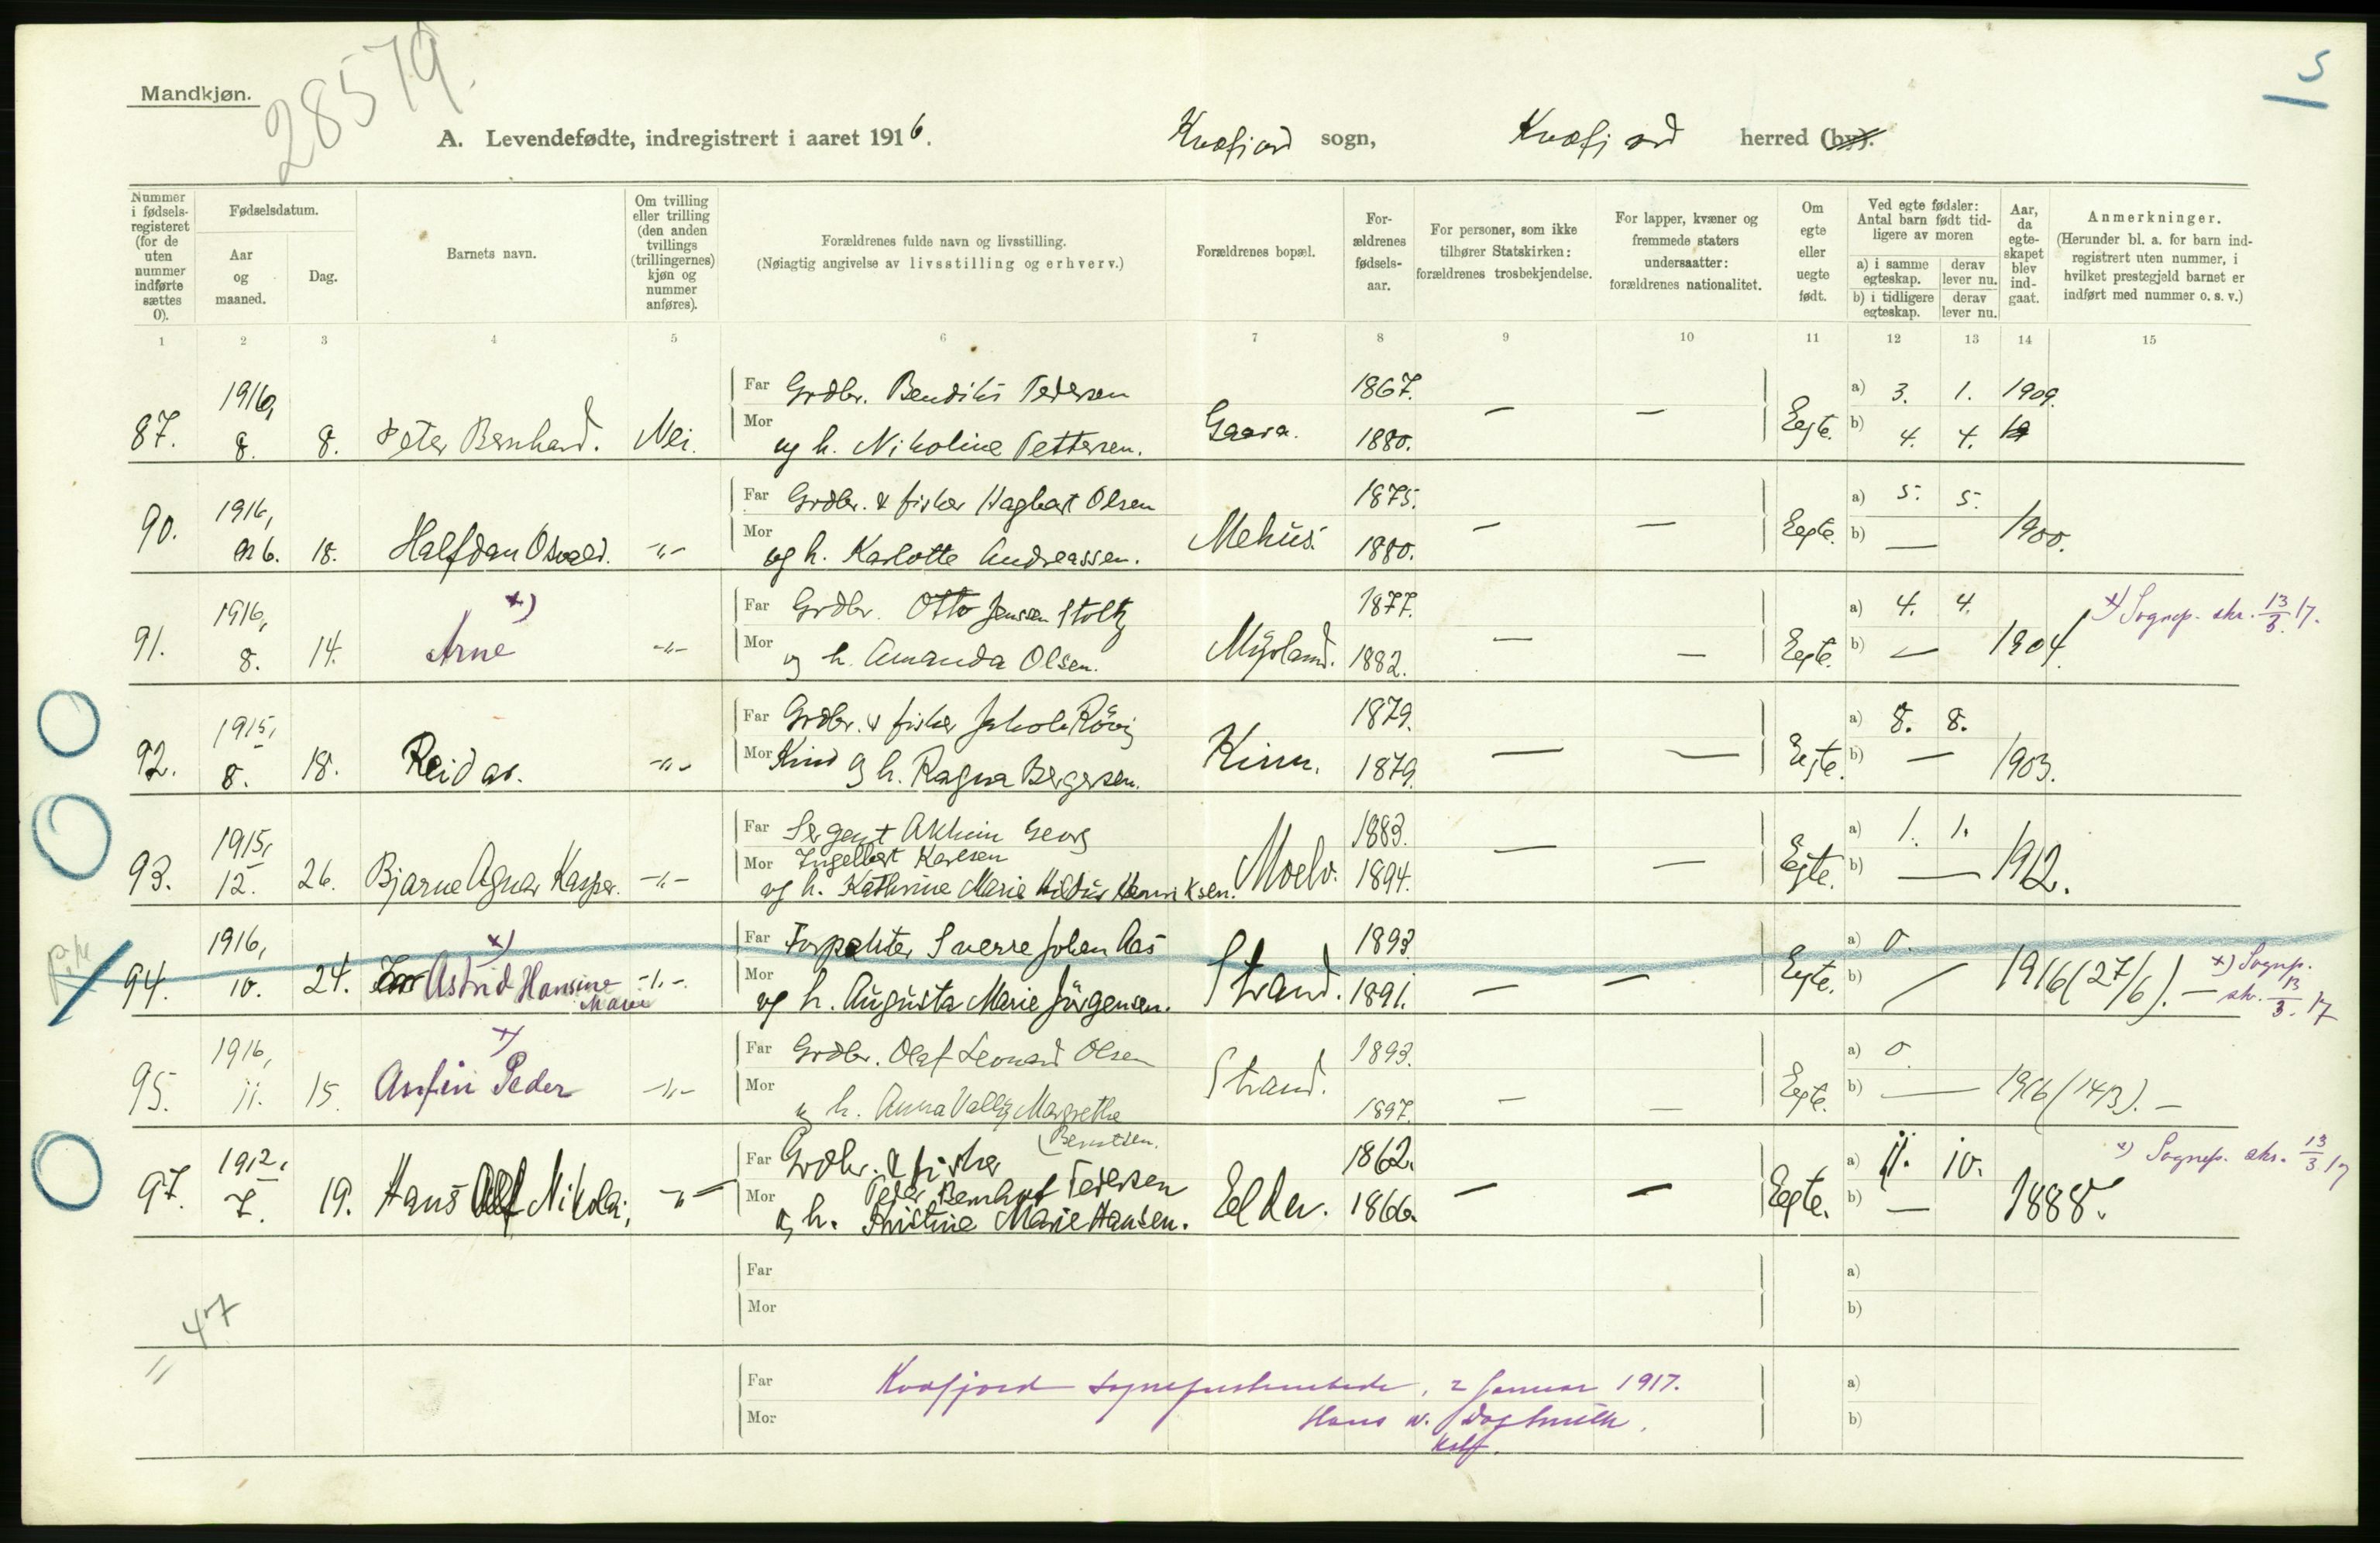 Mandkjøn.
28579.
5
A. Levendefødte, indregistrert i aaret 1916.
Kvæfjord sogn,
Kvæfjord herred (by).
Nummer i fødsels-registeret (for de uten nummer indførte sættes 0).
Fødselsdatum.
Aar og maaned.
Dag.
Barnets navn.
Om tvilling eller trilling (den anden tvillings (trillingernes) kjøn og nummer anføres).
Forældrenes fulde navn og livsstilling.
(Nøiagtig angivelse av livsstilling og erhverv.)
Forældrenes bopæl.
For-ældrenes fødsels-aar.
For personer, som ikke tilhører Statskirken: forældrenes trosbekjendelse.
For lapper, kvæner og fremmede staters undersaatter: forældrenes nationalitet.
Om egte eller uegte født.
Ved egte fødsler: Antal barn født tid-ligere av moren
a) i samme egteskap.
derav lever nu.
b) i tidligere egteskap.
derav lever nu.
Aar, da egte-skapet blev ind-gaat.
Anmerkninger.
(Herunder bl. a. for barn ind-registrert uten nummer, i hvilket prestegjeld barnet er indført med nummer o. s. v.)
1 2 3 4 5 6 7 8 9 10 11 12 13 14 15
Far Grdbr. Bendiks Pedersen 1867. a) 3. 1. 1909.
87. 1916, 8. 8. Peter Bernhard. Nei. Mor og h. Nikoline Pettersen. Gaara. 1880. — — Egte. b) 4. 4.
Far Grdbr. & fisker Hagbart Olsen 1875. a) 5. 5.
90. 1916, 6. 18. Halfdan Osvald. -"- Mor og h. Karlotte Andreassen. Mehus. 1880. — — Egte. b) — 1900.
Far Grdbr. Otto Jenssen Stoltz 1877. a) 4. 4. x) Sognep. skr. 13/3. 17.
91. 1916, 8. 14. Arne x) -"- Mor og h. Amanda Olsen. Myrland. 1882. — — Egte. b) — 1904.
Far Grdbr. & fisker Jakob Røvig 1879. a) 8. 8.
92. 1915, 8. 18. Reidar. -"- Mor Kind og h. Ragna Bergersen. Kinn. 1879. — — Egte. b) — 1903.
Far Sergent Akhim Georg 1883. a) 1. 1.
Ingelbert Karlsen
93. 1915, 12. 26. Bjarne Agnar Kasper. -"- Mor og h. Kathrine Marie Hildur Henriksen. Moelv. 1894. — — Egte. b) — 1912.
Far Forpakter Sverre Johan Aas 1893. a) 0.
94. 1916, 10. 24. x) Astrid Hansine Marie -"- Mor og h. Augusta Marie Jørgensen. Strand. 1891. — — Egte. b) 1916 (27/6). — x) Sognep. skr. 13/3. 17
Far Grdbr. Olaf Leonard Olsen 1893. a) 0.
95. 1916, 11. 15. x) Anfin Peder -"- Mor og h. Anna Vally Margrethe Strand. 1897. — — Egte. b) — 1916 (14/3). —
(Berntsen.
Far Grdbr. & fisker 1862. a) 11. 10. x) Sognep. skr. 13/3 17
Peder Bernhof Pedersen
97. 1912, 7. 19. Hans Alf Nikolai, -"- Mor og h. Kristine Marie Hansen. Elden. 1866. — — Egte. b) — 1888.
Far a)
Mor b)
47
Far Kvæfjord sogneprestembede, 2 Januar 1917. a)
Mor Hans b)